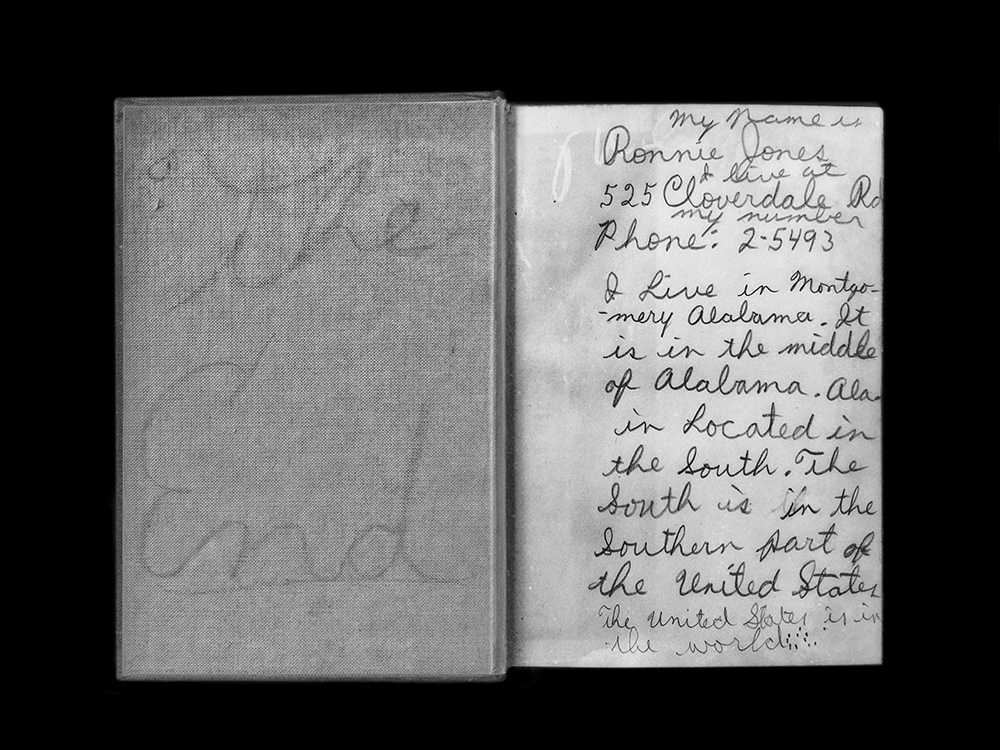 The
End
My Name is
Ronnie Jones
I live at
525 Cloverdale Rd
my number
Phone: 2-5493
I Live in Montgo-
-mery Alabama. It
is in the middle
of Alabama. Ala.
in Located in
the South. The
South is in the
Southern part of
the United States
The United States is in
the world